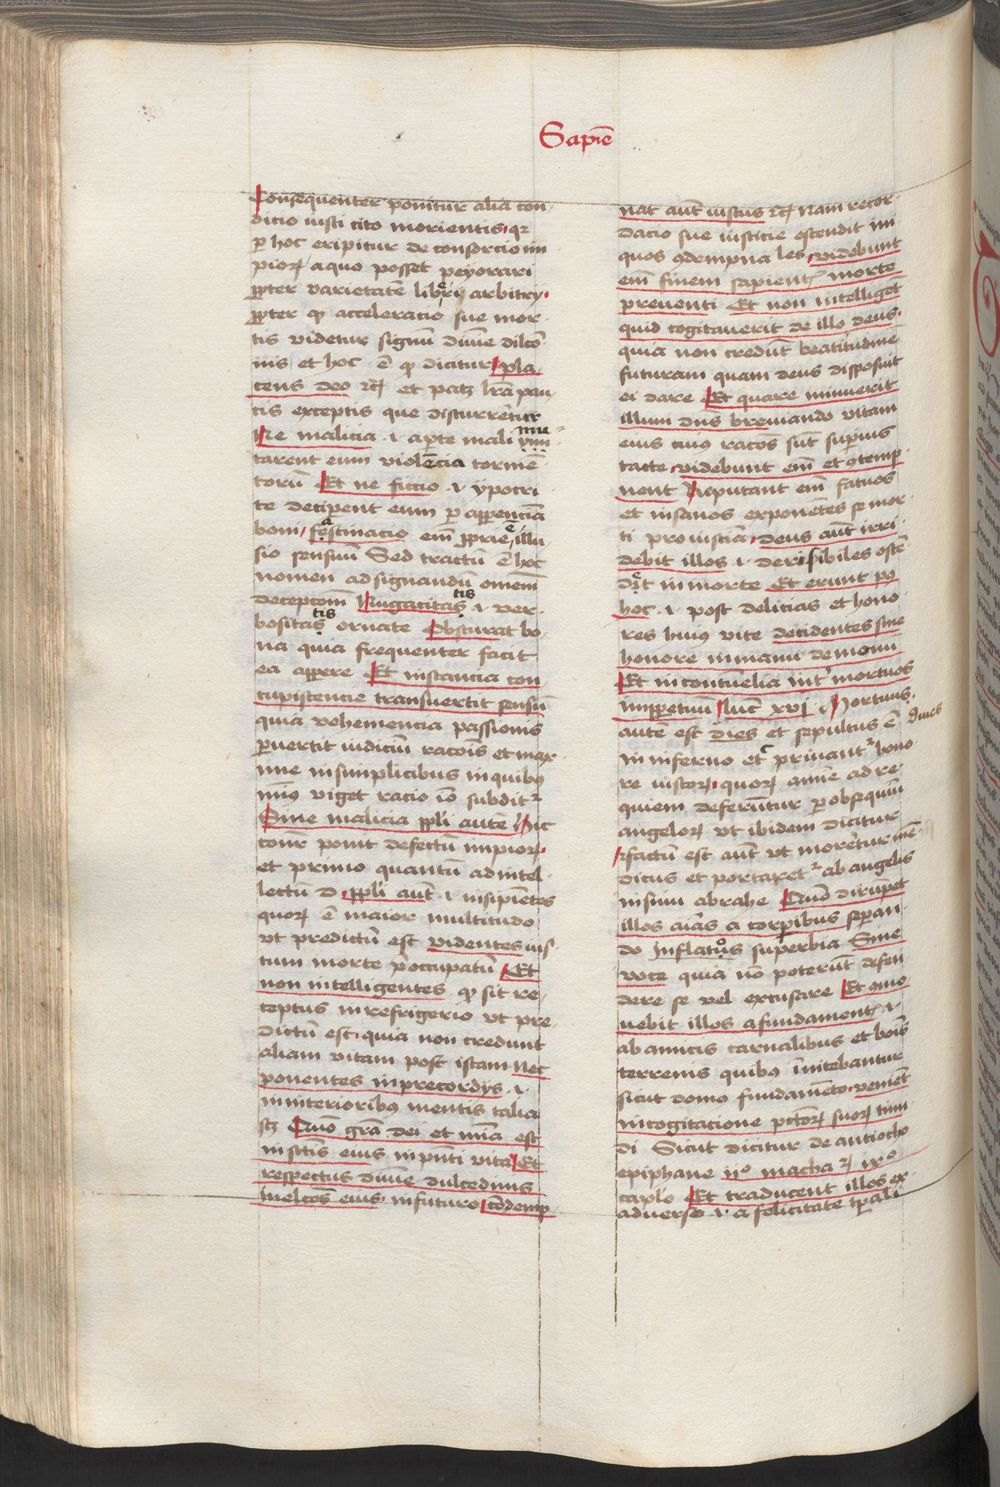 Sapīe
Consequenter ponitur alia con-
dicio iusti cito morientis qꝛ
ꝑ hoc eripitur de consorcio im
pioꝝ a quo posset peyorari
ꝓpter varietatē liberi arbitrij
ꝓpter qꝫ acceleratio sue mor-
tis videtur signū diuīe dilcō
nis et hoc ē qꝫ dicitur pla
cens deo ⁊cꝫ et patꝫ lr̄a pau
cis exceptis que discurrētur
Ne malicia .i. apte mali mu
tarent eum violēcia tormē
torū Et ne fictio .i. ypocri
te deciperent eum ꝑ apparenciā
boni fascinacio em̄ ꝓprie ē illu
sio sensuū Sed tractū ē hoc
nomen ad signandū omēm
decepcōem Nugacitatis .i. ver-
bositatis ornate Obscurat bo-
na quia frequenter facit
ea appere Et instancia con
cupiscencie transuertit sensū
quia vehemencia passionis
ꝑuertit iudiciū racōis et max
ime in simplicibus in quibꝰ
minꝰ viget ratio iō subditꝛ
Sine malicia ppl̄i autē Hic
cōnr̄ ponit defectū impioꝝ
et primo quantū ad intel-
lectū d. ppl̄i aut̄ .i. insipiētes
quoꝝ ē maior multitudo
vt predictū est videntes ius
tum morte p̄occupatū Et
non intelligentes qꝫ sit re-
ceptus in refrigerio vt pre-
dictū est quia non credunt
aliam vitam post istam Nec
ponentes in precordijs .i.
in interioribꝰ mentis talia
scꝫ Quō gr̄a dei et mīa est
in sctīs eius in pn̄ti vita Et
respectus diuīe dulcedinis
in elcōs eius in futuro cōdemp
nat aut̄ iustus ⁊cꝫ Nam recor-
dacio sue iusticie ostendit ini
quos ꝯdempnables videbunt
em̄ finem sapientꝭ morte
preuenti Et non intelligēt
quid cogitauerit de illo deus
quia non credūt beatitudinē
futuram quam deus disposuit
ei dare Et quare minuerit
illum dn̄s breuiando vitam
eius cuiꝰ racōes sūt suꝑius
tacte videbunt em̄ et ꝯtemp
nent Reputant em̄ fatuos
et insanos exponētes se mor-
ti pro iusticia deus aut̄ irri
debit illos .i. derisibiles ostē
dꝫ in morte Et erunt po
hoc .i. post delicias et hono
res huiꝰ vite decidentes sine
honore in manu demonū
Et in contumelia int̄ mortuos
in ꝑpetuū Luc̄ xvj Mortuus
autē est dies et sepultus ē diues
in inferno et priuantꝛ hono
re iustoꝝ quoꝝ anīe ad re-
quiem deferūtur ꝑ obsequiū
angeloꝝ vt ibidem dicitur
factū est aut̄ vt morētur mē-
dicus et portaretꝛ ab angelis
in sinū abrahe Quō dirūpet
illos aīas a corꝑibus separan-
do Inflatos superbia Sine
voce quia nō poterūt defen
dere se vel excusare Et com̄o
uebit illos a fundamentꝭ .i.
ab amicis carnalibus et bonis
terrenis quibꝰ innitebantur
sicut domo fundamēto venient
in cogitacione pctōꝝ suoꝝ timi-
di Sicut dicitur de antiocho
epiphane ijº machaꝝ ixº
caplo Et traducent illos ex
aduerso .i. a felicitate tꝑali